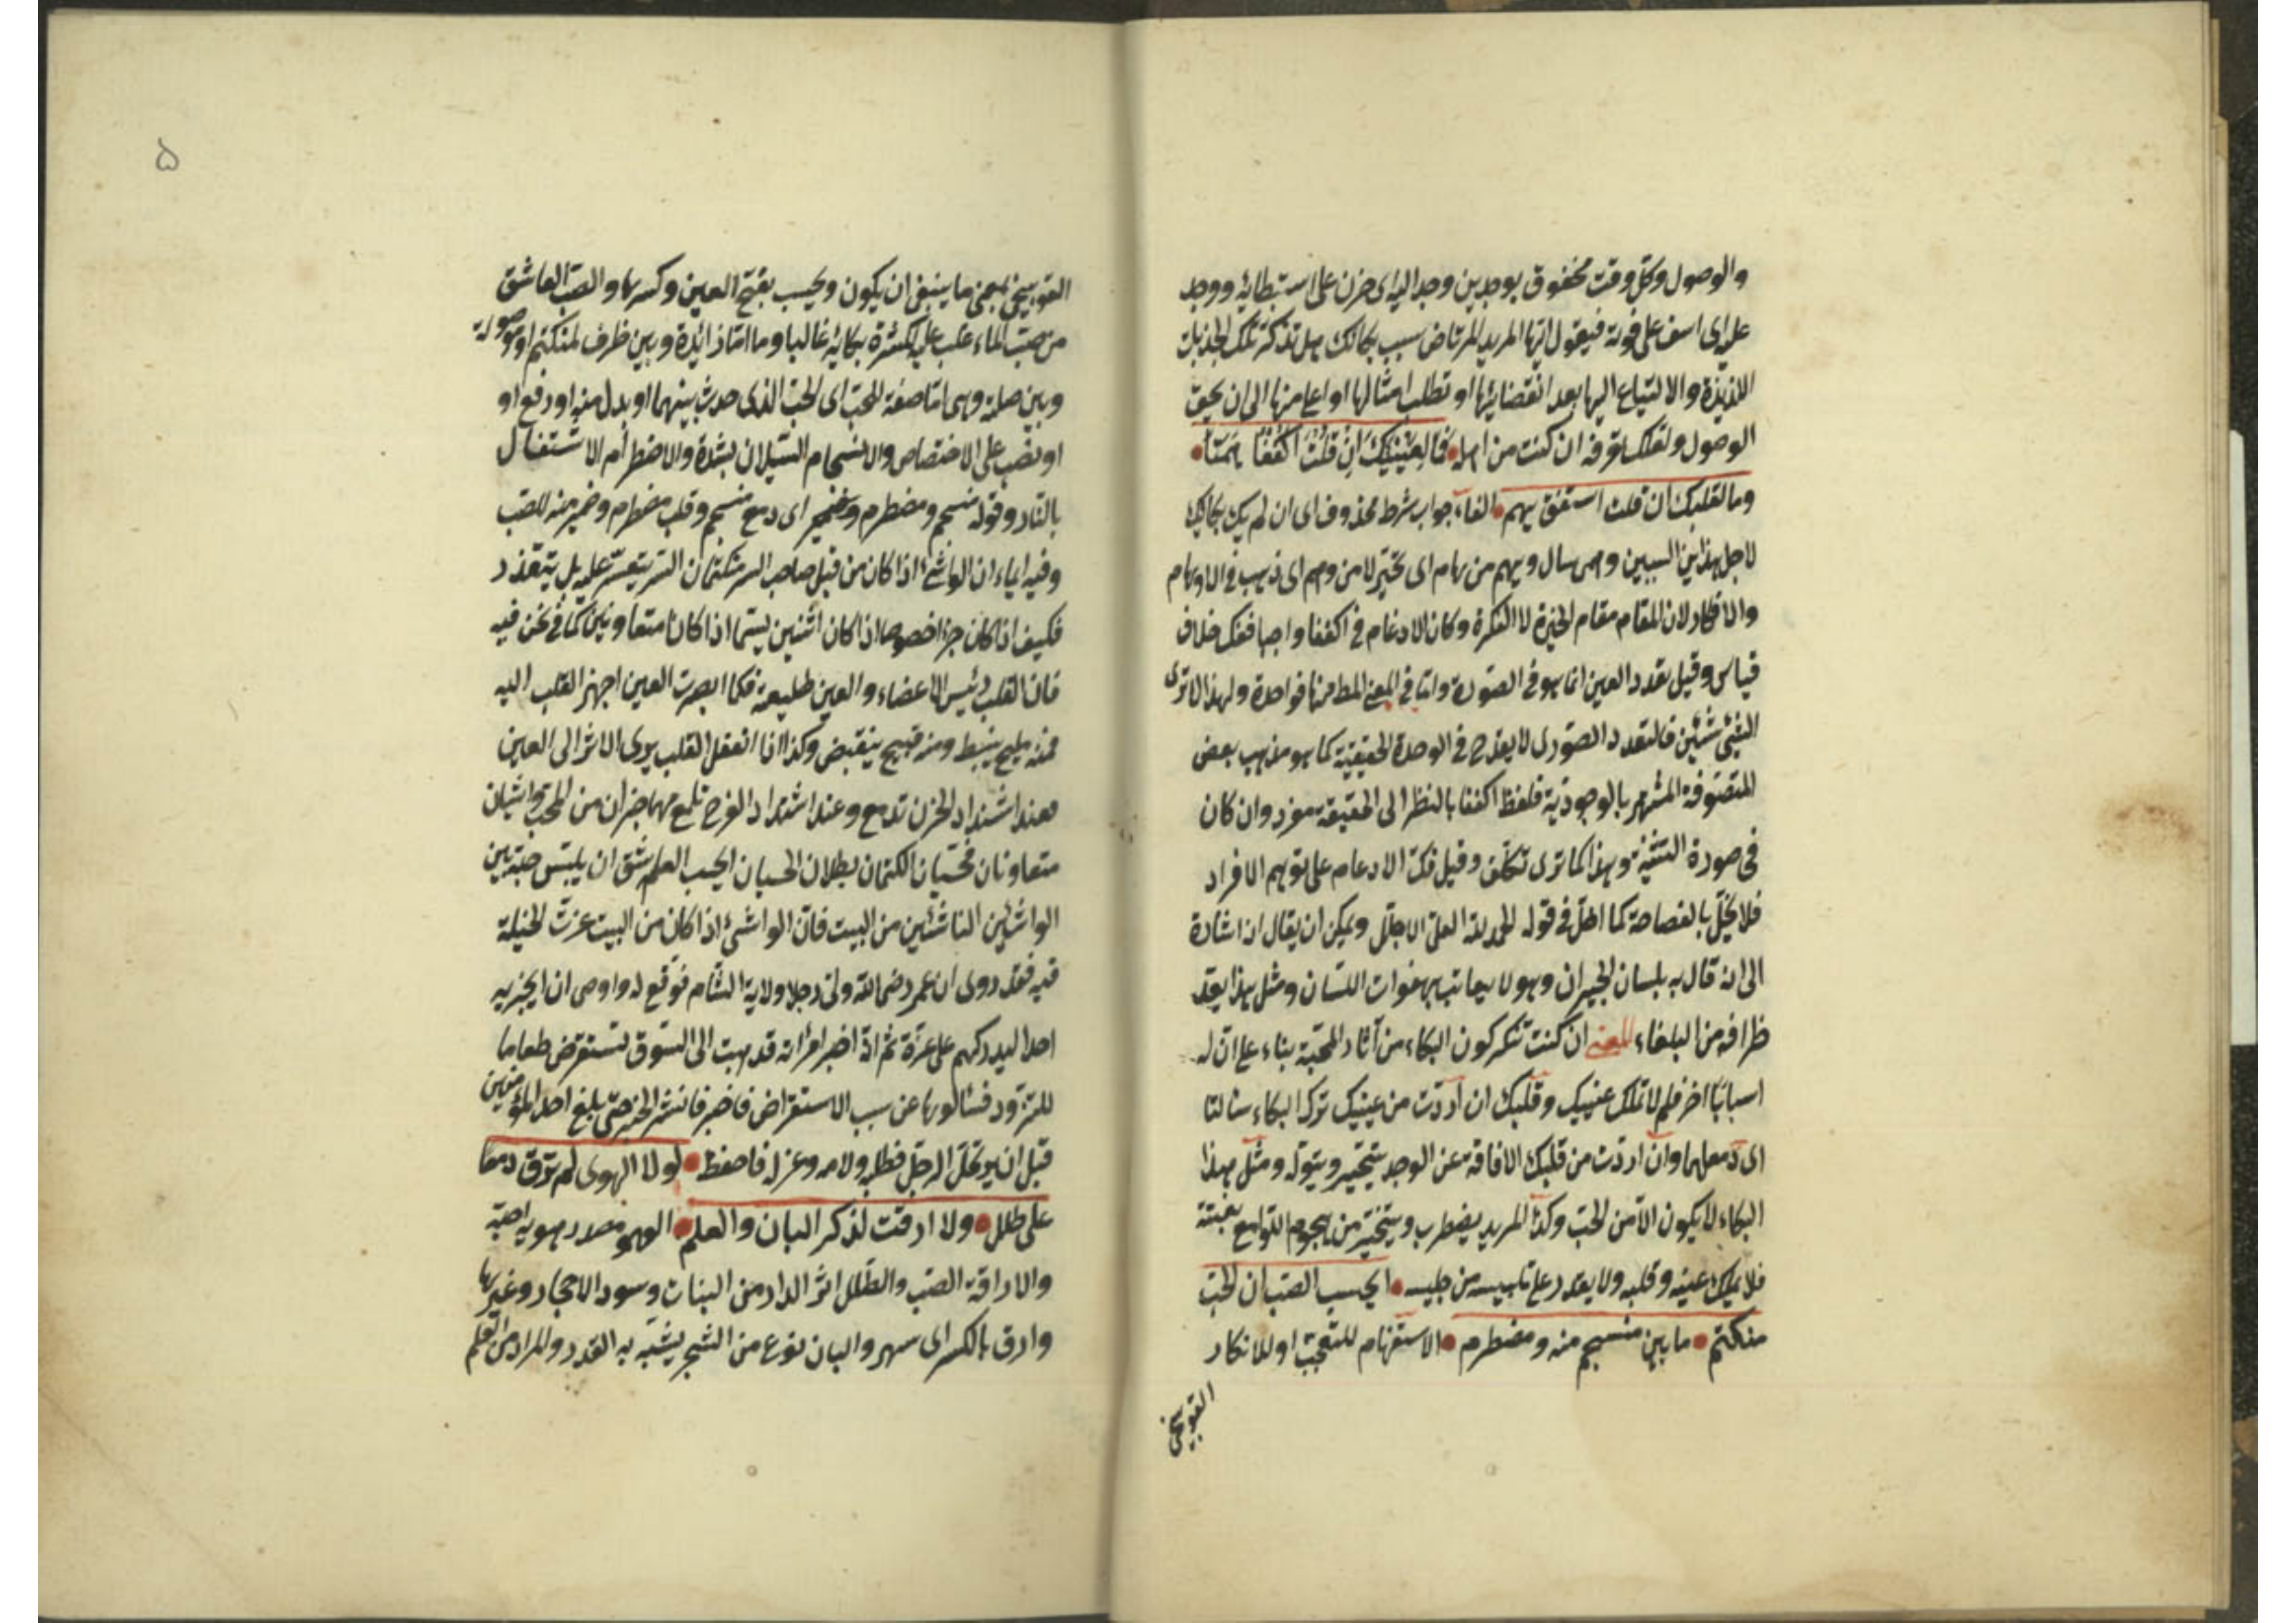 والوصول وكل وقت محفوف بوجدين وجد اليه اى حزن على استبطائه ووجد
عليه اى اسف على فوته فيقول ايها المريد المرتاض سبب بكائك هل تذكر تلك الجذبات
اللذيذة والالتياع اليها بعد انقضائها او تطلب امثالها او اعلى منها الى ان يحق
الوصول ولعلك تعرفه ان كنت من اهله فما لعينيك ان قلت اكففا همتا
وما لقلبك ان قلت استفق يهم الفاء جواب شرط محذوف اى ان لم يك بكائك
لاجل هذين السببين وهمى سال ويهم من هام اى تحير لا من وهم اى ذهب فى الاوهام
والافكار لان المقام مقام الحيرة لا الفكرة وكان الادغام فى اكففا واجبا ففكه خلاف
قياس وقيل تعدد العين انما هو فى الصورة واما فى المعنى المط منها فواحدة ولهذا لا ترى
الشئ شيئين فالتعدد الصورى لا يقدح فى الوحدة الحقيقية كما هو مذهب بعض
المتصوفة المشهر بالوجودية فلفظ اكففا بالنظر الى الحقيقة مفرد وان كان
فى صورة التثنية وهذا كما ترى تكلف وقيل فك الادغام على توهم الافراد
فلا يخل بالفصاحة كما اخل فى قوله الحمد لله العلى الاجلل ويمكن ان يقال انه اشارة
الى انه قال به بلسان الحيران وهو لا يعاتب بهفوات اللسان ومثل هذا يعد
ظرافة من البلغاء المعنى ان كنت تنكر كون البكاء من آثار المحبة بناء على ان له
اسبابا اخر فلم لا تملك عينيك وقلبك ان اردت من عينيك ترك البكاء سالتا
اى دمعهما وان اردت من قلبك الافاقة عن الوجد يتحير ويتوله ومثل هذا
البكاء لا يكون الا من الحب وكذا المريد يضطرب ويتحير من هجوم اللوامع بغتة
فلا يملك عينه وقلبه ولا يقدر على تلبيسه من جليسه ايحسب الصب ان الحب
منكتم ما بين منسجم منه ومضطرم الاستفهام للتعجب او للانكار
التوبيخى
۵
التوبيخى بمعنى ما ينبغى ان يكون ويحسب بفتح العين وكسرها والصب العاشق
من صب الماء غلب عليه لكثرة بكائه غالبا وما اما زائدة وبين ظرف لمنكتم او موصولة
وبين صلة وهى اما صفة للحب اى الحب الذى حدث بينهما او بدل منه او رفع او
او نصب على الاختصاص والانسجام السيلان بشدة والاضطرام الاشتعال
بالنار وقوله منسجم ومضطرم وضمير اى دمع منسجم وقلب مضطرم وضمير منه للصب
وفيه ايماء ان الواشئ اذا كان من قبل صاحب السر فكتمان السر يتعسر عليه بل يتعذر
فكيف اذا كان جزءا خصوصا اذا كان اثنين سيما اذا كانا متعاونين كما فى نحن فيه
فان القلب رئيس الاعضاء والعين طليعة فكما ابصرت العين اجهز القلب اليه
فمنه مليح ينبسط ومنه قبيح ينقبض وكذا اذا انفعل القلب يودى الاثر الى العين
فعند اشتداد الحزن تدمع وعند اشتداد الفرح تلمع فهما جزآن من المحب واشيان
متعاونان فحسبان الكتمان بطلان الحسبان ايحسب العاشق ان يلبس حبه بين
الواشيين الناشئين من البيت فان الواشئ اذا كان من البيت عزت الحيلة
فيه فقد روى ان عمر رضى الله ولى رجلا ولاية الشام فوقع له واوصى ان لا يخبر به
احدا ليدركهم على غرة ثم انه اخبر امرأته قد بهت الى السوق لتستقرض طعاما
للتزود فسألوها عن سبب الاستقراض فاخبر فانتشر الخبر حتى بلغ امير المؤمنين
قبل ان يرتحل الرجل فطلبه ولامه وعزله فاحفظ لولا الهوى لم ترق دمعا
على طلل ولا ارقت لذكر البان والعلم الهوى مصدر هويه احبه
والاراقة الصب والطلل اثر الدار من البنات وسود الاحجار وغيرها
وارق بالكسر اى سهر والبان نوع من الشجر يشبه به القدر والمراد من العلم